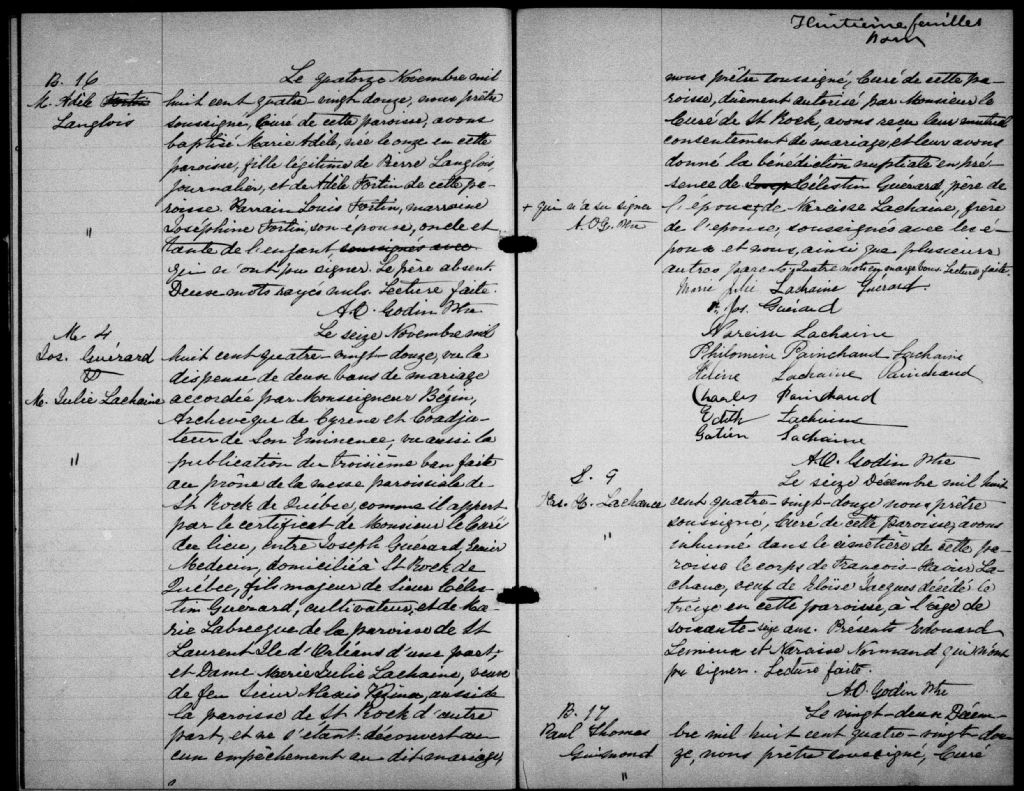 B. 16
M. Adèle Fortin
Langlois
"
Le quatorze Novembre mil
huit cent quatre vingt-douze, nous prêtre
soussigné, Curé de cette paroisse, avons
baptisé Marie Adèle, née le onze en cette
paroisse, fille légitime de Pierre Langlois,
journalier, et de Adèle Fortin de cette pa-
roisse. Parrain Louis Fortin, marraine
Joséphine Fortin, son épouse, oncle et
tante de l'enfant soussignés avec
qui n'ont pu signer. Le père absent.
Deux mots rayés nuls. Lecture faite.
A.O. Godin Ptre
M. 4
Jos. Guérard
&
M. Julie Lachaine
"
Le seize Novembre mil
huit cent quatre-vingt-douze, vu la
dispense de deux bans de mariage
accordée par Monseigneur Bégin,
Archevêque de Cyrène et Coadju-
teur de Son Eminence, vu aussi la
publication du troisième ban faite
au prône de la messe paroissiale de
St Rock de Québec, comme il appert
par le certificat de Monsieur le Curé
du lieu, entre Joseph Guérard,
Medecin, domicilié à St Rock de
Québec, fils majeur de Sieur Céles-
tin Guérard, cultivateur, et de Ma-
rie Labrecque de la paroisse de St
Laurent Ile d'Orléans d'une part;
et Dame Marie Julie Lachaine, veuve
de feu Sieur Alexis aussi de
la paroisse de St Rock d'autre
part, et ne s'étant découvert au-
cun empêchement au dit mariage,
Huitième feuillet
nous prêtre soussigné, Curé de cette pa-
roisse, dûment autorisé par Monsieur le
Curé de St Rock, avons reçu leur mutuel
consentement de mariage et leur avons
donné la bénédiction nuptiale en pré-
sence de Josep Célestin Guérard, père de
l'époux + de Narcisse Lachaine, frère
de l'épouse, soussignés avec les é-
poux et nous, ainsi que plusieurs
autres parents. Quatre mots en marge bons. Lecture faite.
+ qui n'a su signer
A.O.G. Ptre
Marie Julie Lachaine Guérard.
Jos. Guérard
Narcisse Lachaine
Philomène Painchaud-Lachaine
Hélène Lachaine Painchaud
Charles Painchaud
Edith Lachaine
Gatien Lachaine
A.O. Godin Ptre
S. 9
Frs. X. Lachance
"
Le seize Décembre mil huit
cent quatre-vingt-douze nous prêtre
soussigné, Curé de cette paroisse, avons
inhumé dans le cimetière de cette pa-
roisse le corps de François-Xavier La-
chance, veuf de Eloïse Jacques décédé le
treize en cette paroisse, à l'âge de
soixante-seize ans. Présents Edouard
Lemieux et Narcisse Normand qui n'ont
pu signer. Lecture faite.
A.O. Godin Ptre
B. 17
Paul Thomas
Guimond
"
Le vingt-deux Décem-
bre mil huit cent quatre-vingt-dou-
ze, nous prêtre soussigné, Curé